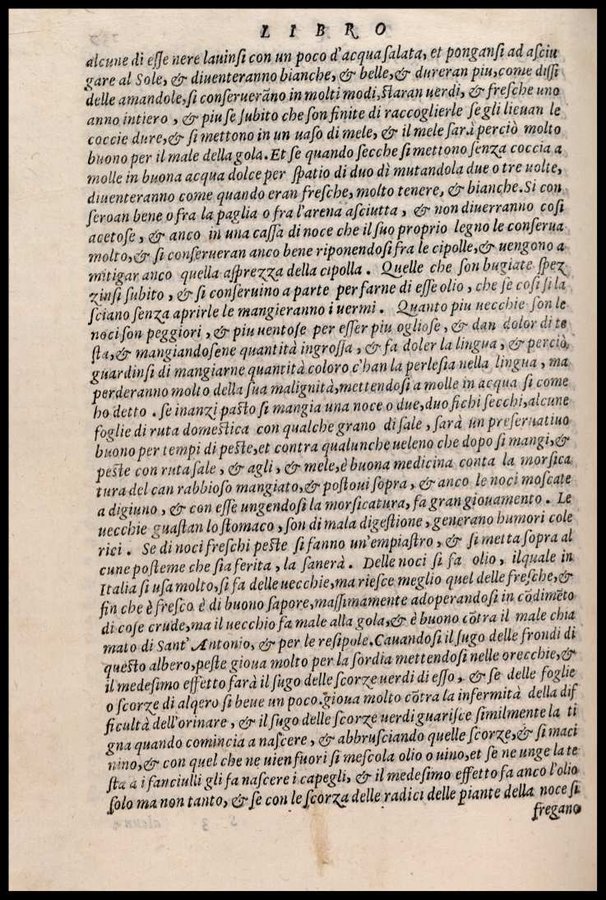 LIBRO
alcune di esse nere lauinsi con un poco d'acqua salata, et pongansi ad asciu
gare al Sole, & diuenteranno bianche, & belle, & dureran piu, come dissi
delle amandole, si conserueráno in molti modi, staran uerdi, & fresche uno
anno intiero, & piu se subito che son finite di raccoglierle se gli lieuan le
coccie dure, & si mettono in un uaso di mele, & il mele sarà perciò molto
buono per il male della gola. Et se quando secche si mettono senza coccia a
molle in buona acqua dolce per spatio di duo dì mutandola due o tre uolte,
diuenteranno come quando eran fresche, molto tenere, & bianche. Si con
seruan bene o fra la paglia o fra l'arena asciutta, & non diuerranno così
acetose, & anco in una cassa di noce che il suo proprio legno le conserua
molto, & si conserueran anco bene riponendosi fra le cipolle, & uengono a
mitigar anco quella asprezza della cipolla. Quelle che son bugiate spez
zinsi subito, & si conseruino a parte per farne di esse olio, che se così si la
sciano senza aprirle le mangieranno i uermi. Quanto piu uecchie son le
noci son peggiori, & piu uentose per esser piu ogliose, & dan dolor di te
sta, & mangiandosene quantità ingrossa, & fa doler la lingua, & perciò
guardinsi di mangiarne quantità coloro c'han la perlesia nella lingua, ma
perderanno molto della sua malignità, mettendosi a molle in acqua si come
ho detto. se inanzi pasto si mangia una noce o due, duo fichi secchi, alcune
foglie di ruta domestica con qualche grano di sale, sarà un preseruatiuo
buono per tempi di peste, et contra qualunche ueleno che dopo si mangi, &
peste con ruta sale, & agli, & mele, è buona medicina conta la morsica
tura del can rabbioso mangiato, & postoui sopra, & anco le noci moscate
a digiuno, & con esse ungendosi la morsicatura, fa gran giouamento. Le
uecchie guastan lo stomaco, son di mala digestione, generano humori cole
rici. Se di noci freschi peste si fanno un'empiastro, & si metta sopra al
cune posteme che sia ferita, la sanerà. Delle noci si fa olio, ilquale in
Italia si usa molto, si fa delle uecchie, ma riesce meglio quel delle fresche, &
fin che è fresco è di buono sapore, massimamente adoperandosi in códiméto
di cose crude, ma il uecchio fa male alla gola, & è buono cótra il male chia
mato di Sant'Antonio, & per le resipole. Cauandosi il sugo delle frondi di
questo albero, peste gioua molto per la sordia mettendosi nelle orecchie, &
il medesimo effetto farà il sugo delle scorze uerdi di esso, & se delle foglie
o scorze di alqero si beue un poco. gioua molto cótra la infermità della dif
ficultà dell'orinare, & il sugo delle scorze uerdi guarisce similmente la ti
gna quando comincia a nascere, & abbrusciando quelle scorze, & si maci
nino, & con quel che ne uien fuori si mescola olio o uino, et se ne unge la te
sta a i fanciulli gli fa nascere i capegli, & il medesimo effetto fa anco l'olio
solo ma non tanto, & se con le scorza delle radici delle piante della noce si
fregano